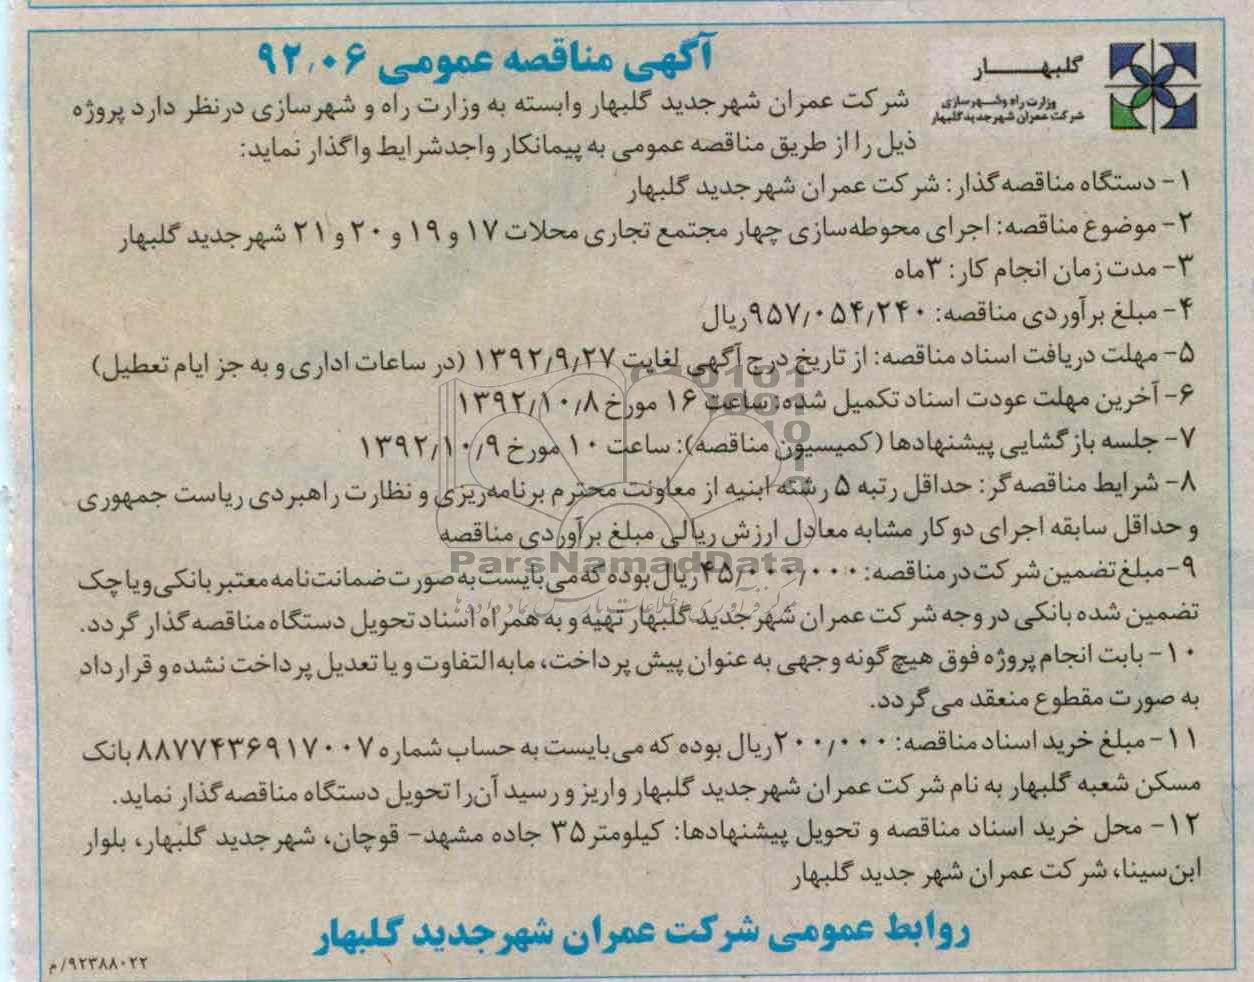 آگهی مناقصه عمومی ۹۲٫۰۶
گلبهار
وزارت راه و شهرسازی
شرکت عمران شهر جدید گلبهار
شرکت عمران شهر جدید گلبهار وابسته به وزارت راه و شهرسازی درنظر دارد پروژه
ذیل را از طریق مناقصه عمومی به پیمانکار واجد شرایط واگذار نماید:
۱- دستگاه مناقصه گذار: شرکت عمران شهر جدید گلبهار
۲- موضوع مناقصه: اجرای محوطه‌سازی چهار مجتمع تجاری محلات ۱۷ و ۱۹ و ۲۰ و ۲۱ شهر جدید گلبهار
۳- مدت زمان انجام کار: ۳ماه
۴- مبلغ برآوردی مناقصه: ۹۵۷٫۰۵۴٫۲۴۰ریال
۵- مهلت دریافت اسناد مناقصه: از تاریخ درج آگهی لغایت ۱۳۹۲٫۹٫۲۷ (در ساعات اداری و به جز ایام تعطیل)
۶- آخرین مهلت عودت اسناد تکمیل شده: ساعت ۱۶ مورخ ۱۳۹۲٫۱۰٫۸
۷- جلسه بازگشایی پیشنهادها (کمیسیون مناقصه): ساعت ۱۰ مورخ ۱۳۹۲٫۱۰٫۹
۸- شرایط مناقصه‌گر: حداقل رتبه ۵ رشته ابنیه از معاونت محترم برنامه‌ریزی و نظارت راهبردی ریاست جمهوری
و حداقل سابقه اجرای دو کار مشابه معادل ارزش ریالی مبلغ برآوردی مناقصه
ParsNamadData
۹- مبلغ تضمین شرکت در مناقصه: ۴۵٫۰۰۰٫۰۰۰ ریال بوده که می‌بایست به صورت ضمانت‌نامه معتبر بانکی و یا چک
تضمین شده بانکی در وجه شرکت عمران شهر جدید گلبهار تهیه و به همراه اسناد تحویل دستگاه مناقصه گذار گردد.
۱۰- بابت انجام پروژه فوق هیچ گونه وجهی به عنوان پیش پرداخت، مابه‌التفاوت و یا تعدیل پرداخت نشده و قرارداد
به صورت مقطوع منعقد می‌گردد.
۱۱- مبلغ خرید اسناد مناقصه: ۲۰۰٫۰۰۰ریال بوده که می‌بایست به حساب شماره ۸۸۷۷۴۳۶۹۱۷۰۰۷ بانک
مسکن شعبه گلبهار به نام شرکت عمران شهر جدید گلبهار واریز و رسید آن را تحویل دستگاه مناقصه گذار نماید.
۱۲- محل خرید اسناد مناقصه و تحویل پیشنهادها: کیلومتر ۳۵ جاده مشهد- قوچان، شهر جدید گلبهار، بلوار
ابن‌سینا، شرکت عمران شهر جدید گلبهار
روابط عمومی شرکت عمران شهر جدید گلبهار
۹۲۳۸۸۰۲۲/م